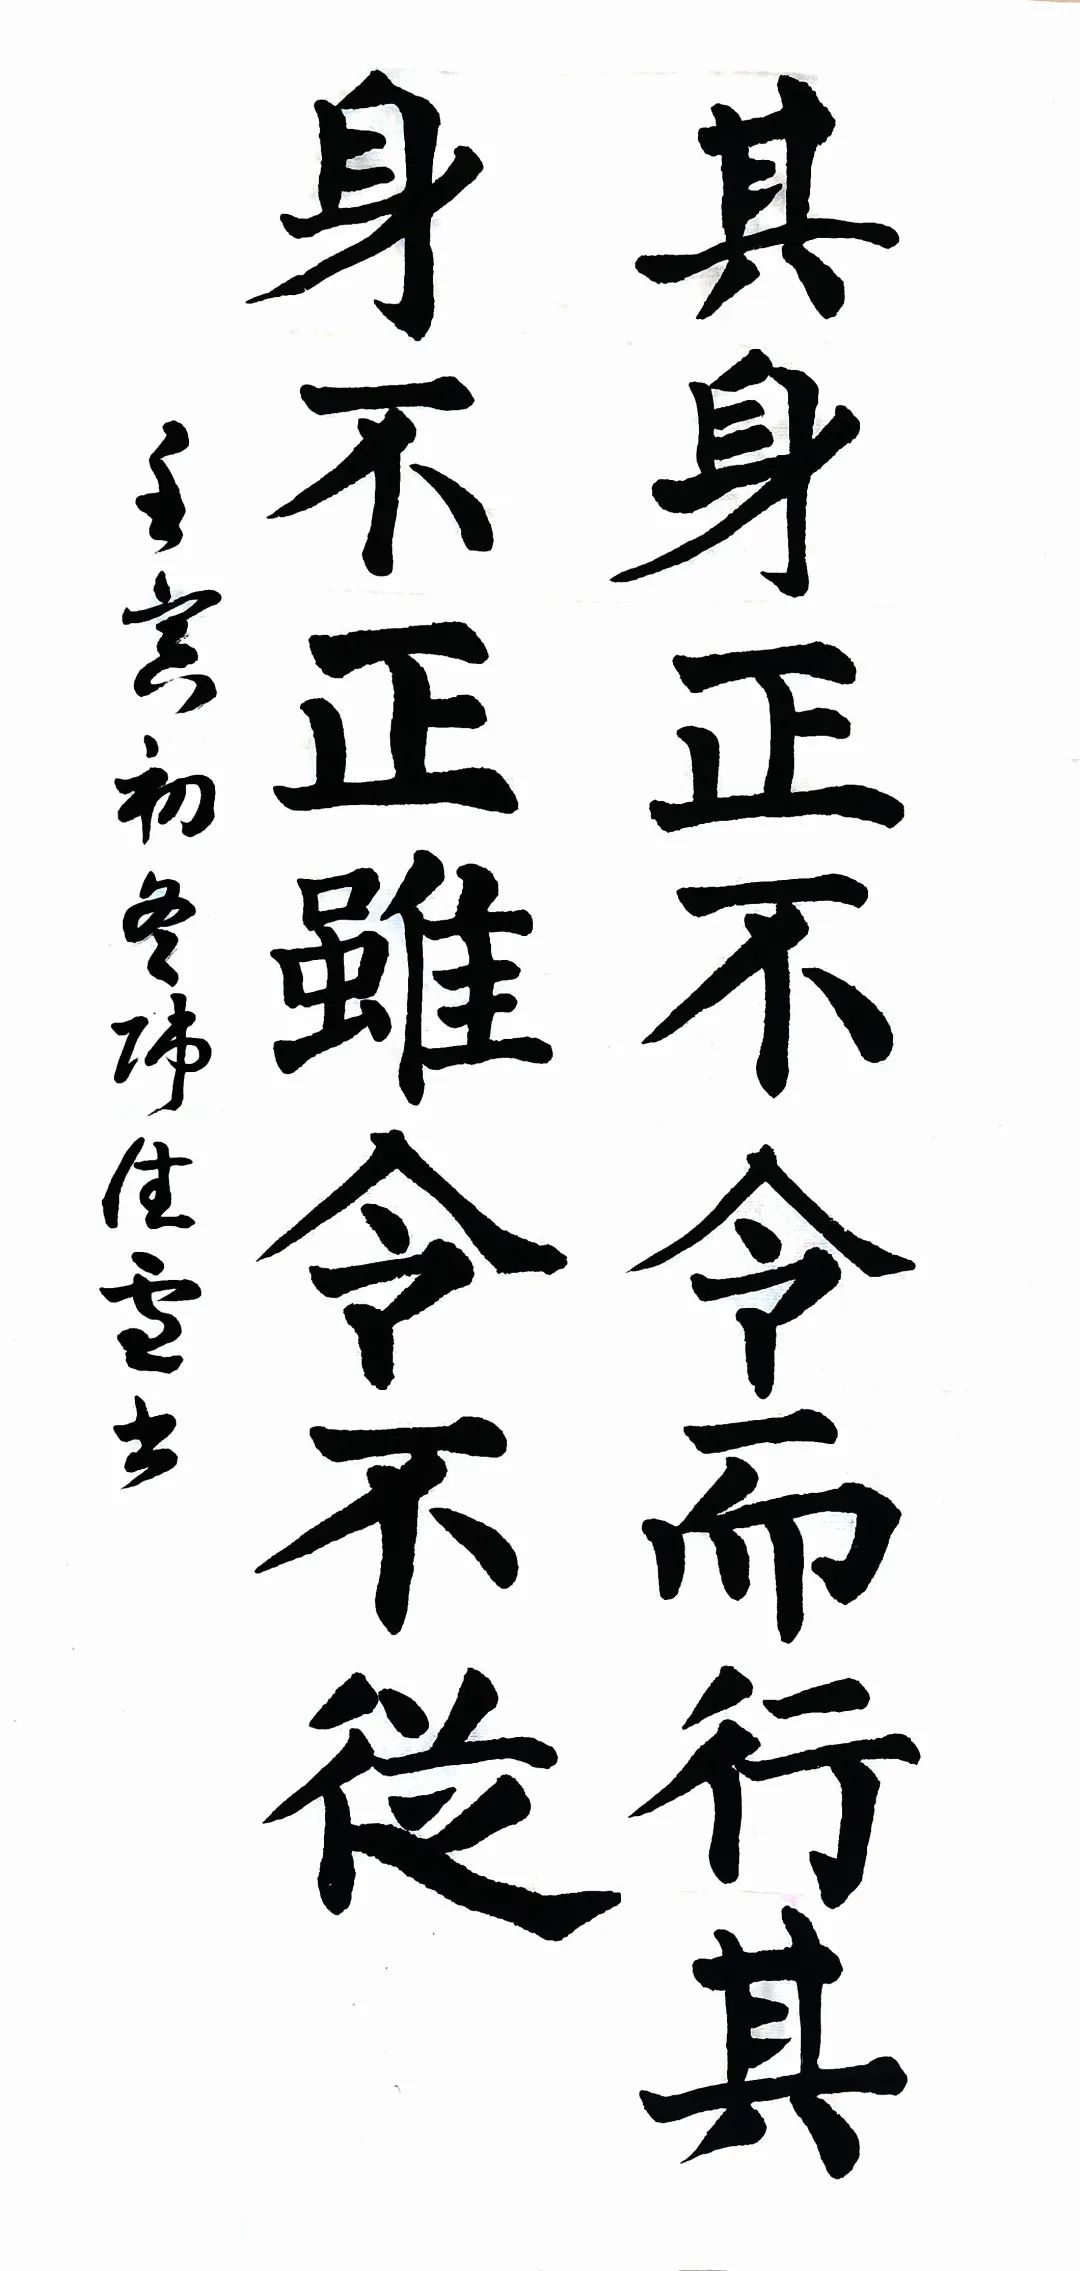 其身正不令而行其
身不正雖令不從
壬寅初冬佳雪书